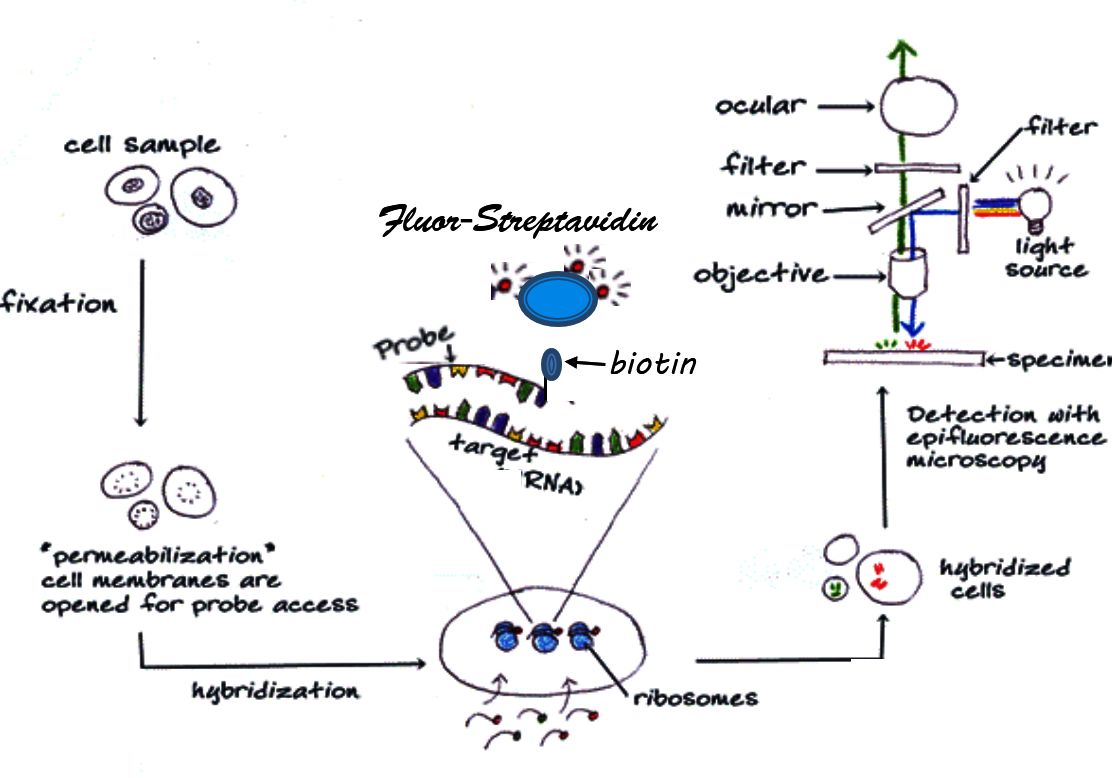 cell sample
fixation
"permeabilization"
cell membranes are
opened for probe access
hybridization
Fluor-Streptavidin
Probe
biotin
target
RNA)
ribosomes
ocular
filter
filter
mirror
light
source
objective
specimen
Detection with
epifluorescence
microscopy
hybridized
cells